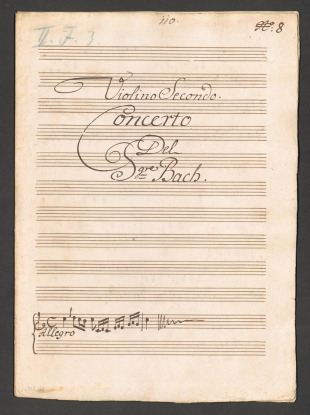 110.
No. 8
II. F. 3
Violino Secondo.
Concerto
Del
Sre Bach.
Allegro